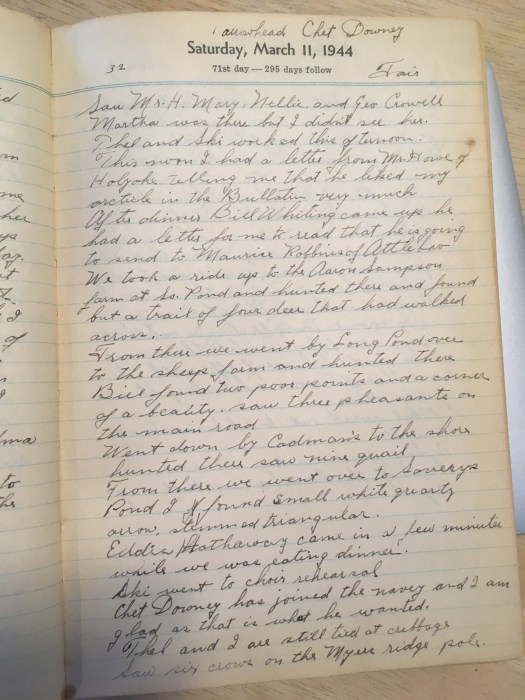 1 arrowhead Chet Downey
Saturday, March 11, 1944
32 71st day — 295 days follow Fair
Saw Mr. H. Mary, Nellie, and Geo Crowell
Martha was there but I didn't see her.
Thel and Ski worked this afternoon.
This noon I had a letter from Mr. Howe of
Holyoke telling me that he liked my
arcticle in the Bullatin very much
After dinner Bill Whiting came up he
had a letter for me to read that he is going
to send to Maurice Robbins of Attleboro
We took a ride up to the Aaron Sampson
farm at So. Pond and hunted there and found
but a trail of four deer that had walked
across.
From there we went by Long Pond over
to the sheep farm and hunted there
Bill found two poor points and a corner
of a beality. saw three pheasants on
the main road
Went down by Cadman's to the shore
hunted there saw nine quail
From there we went over to Saverys
Pond I found small white quartz
arrow, stemmed triangular.
Eddie Hatharway came in a few minutes
while we was eating dinner.
Ski went to choir rehearsal
Chet Downey has joined the navey and I am
glad as that is what he wanted.
Thel and I are still tied at cribbage
Saw six crows on the Myers ridge pole.
ed
om
me
her
ay.
it
I
of
lma
to
the